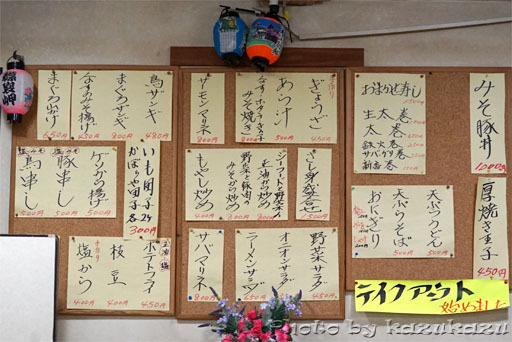 襟裳岬
鳥ザンギ 450円
まぐろザンギ 800円
なすみそ揚げ 450円
まぐろ山かけ 650円
ケンカの揚げ 500円
塩・みそ
豚串し 500円
塩・みそ
鳥串し 500円
いも団子 2ケ
かぼちゃ団子 各 300円
玉油・塩
ポテトフライ 450円
枝豆 400円
手作り
塩から 400円
手作り
ぎょうざ 450円
あら汁 500円
なす・ポタラ・きのこ
みそ焼き 800円
サーモンマリネ 800円
さし身盛合 1500円
シーフードと野菜
正油か炒め 800円
野菜と豚肉の
みそから炒め 800円
もやし炒め 400円
野菜サラダ
オニオンサラダ
ラーメンサラダ 650円
サバマリネ 800円
おまかせ寿し 1500円
生太巻
太巻
鉄火巻
サバガリ巻
新香巻
天ぷらうどん 500円
天ぷらそば 500円
おにぎり
みそ豚丼 1000円
厚焼き玉子 450円
テイクアウト
始めました
Photo by kazukazu